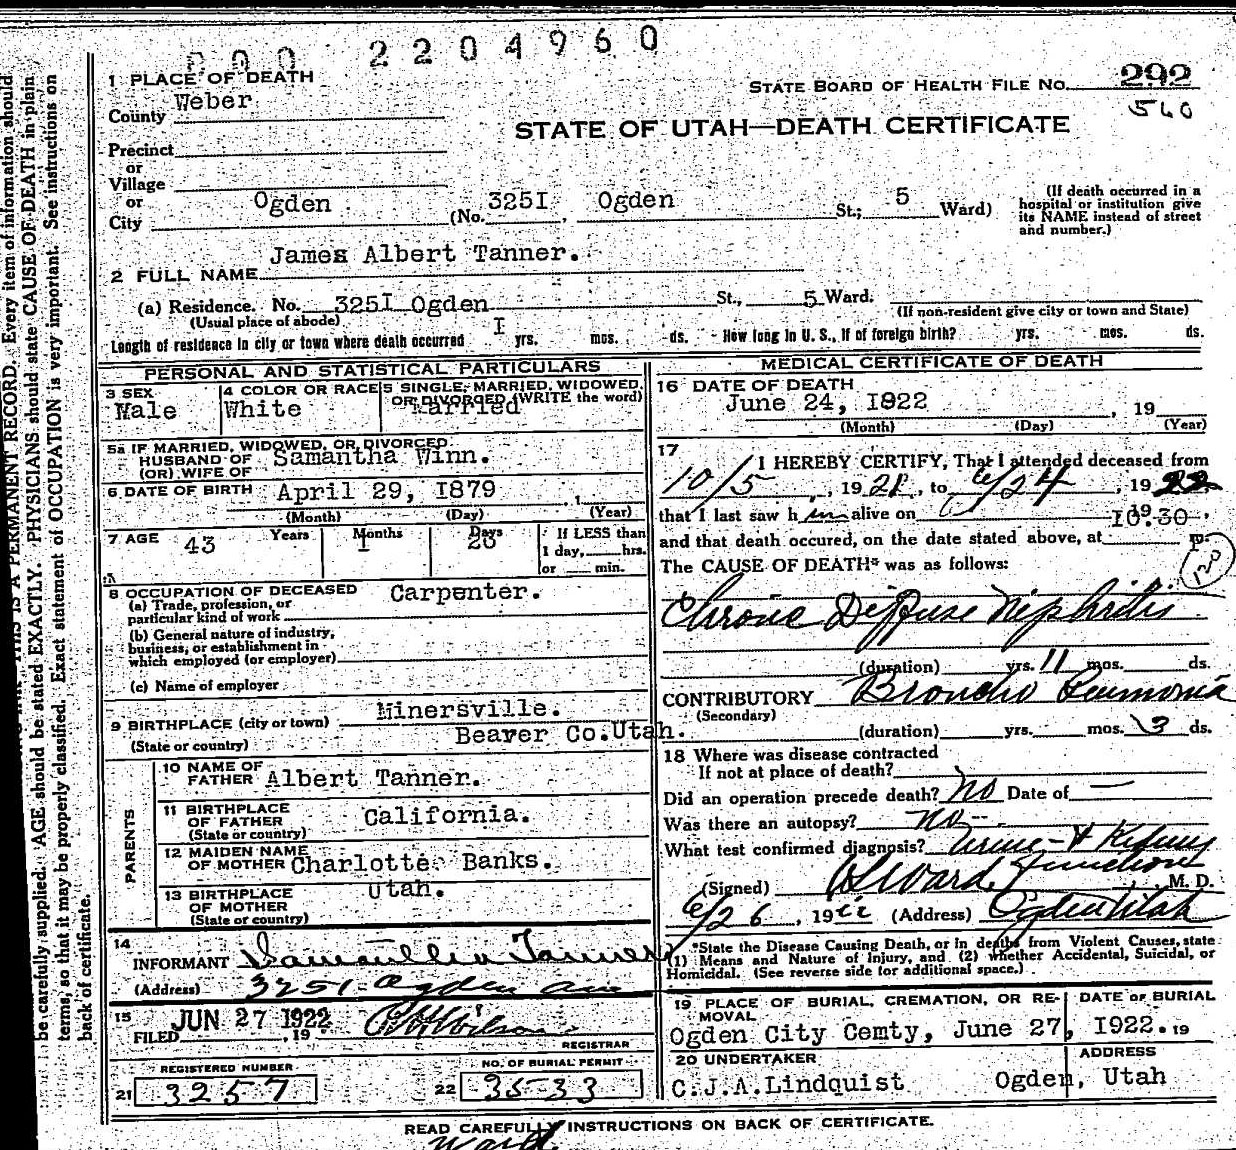 2204960
1 PLACE OF DEATH
STATE BOARD OF HEALTH FILE No. 292
County Weber
560
STATE OF UTAH—DEATH CERTIFICATE
Precinct
or
Village
or
City Ogden (No. 325I, Ogden St.; 5 Ward)
(If death occurred in a
hospital or institution give
its NAME instead of street
and number.)
2 FULL NAME James Albert Tanner.
(a) Residence. No. 325I Ogden St., 5 Ward.
(Usual place of abode)
(If non-resident give city or town and State)
Length of residence in city or town where death occurred I yrs. mos. ds. - How long in U. S., if of foreign birth? yrs. mos. ds.
PERSONAL AND STATISTICAL PARTICULARS
3 SEX Male
4 COLOR OR RACE White
5 SINGLE, MARRIED, WIDOWED,
OR DIVORCED (WRITE the word)
Married
5a IF MARRIED, WIDOWED, OR DIVORCED
HUSBAND OF Samantha Winn.
(OR) WIFE OF
6 DATE OF BIRTH April 29, I879, 1
(Month) (Day) (Year)
7 AGE 43 Years Months Days
If LESS than
1 day, hrs.
or min.
8 OCCUPATION OF DECEASED Carpenter.
(a) Trade, profession, or
particular kind of work
(b) General nature of industry,
business, or establishment in
which employed (or employer)
(c) Name of employer
9 BIRTHPLACE (city or town) Minersville.
(State or country) Beaver Co.Utah.
PARENTS
10 NAME OF
FATHER Albert Tanner.
11 BIRTHPLACE
OF FATHER California.
(State or country)
12 MAIDEN NAME
OF MOTHER Charlotte Banks.
13 BIRTHPLACE Utah.
OF MOTHER
(State or country)
14
INFORMANT Samantha Tanner
(Address) 3251 Ogden Ave
15 FILED JUN 27 1922, 19 Wilson
REGISTRAR
REGISTERED NUMBER
21 3257
NO. OF BURIAL PERMIT
22 3533
MEDICAL CERTIFICATE OF DEATH
16 DATE OF DEATH
June 24, I922, 19
(Month) (Day) (Year)
17
I HEREBY CERTIFY, That I attended deceased from
10/5, 1921, to 6/24, 1922,
that I last saw him alive on , 19 ,
10.30
and that death occured, on the date stated above, at p.
The CAUSE OF DEATH* was as follows:
120
Chronic Diffuse Nephritis
(duration) yrs. 11 mos. ds.
CONTRIBUTORY Broncho Pneumonia
(Secondary)
(duration) yrs. mos. 3 ds.
18 Where was disease contracted
If not at place of death?
Did an operation precede death? No Date of —
Was there an autopsy? no
What test confirmed diagnosis? Urine & Kidney
function
(Signed) Ward, M. D.
6/26, 1922 (Address) Ogden Utah
*State the Disease Causing Death, or in deaths from Violent Causes, state
(1) Means and Nature of Injury, and (2) whether Accidental, Suicidal, or
Homicidal. (See reverse side for additional space.)
19 PLACE OF BURIAL, CREMATION, OR RE-
MOVAL
DATE OF BURIAL
Ogden City Cemty, June 27, I922. 19
20 UNDERTAKER
C.J.A.Lindquist
ADDRESS
Ogden, Utah
READ CAREFULLY INSTRUCTIONS ON BACK OF CERTIFICATE.
Ward.
THIS IS A PERMANENT RECORD. Every item of information should
be carefully supplied. AGE should be stated EXACTLY. PHYSICIANS should state CAUSE OF DEATH in plain
terms, so that it may be properly classified. Exact statement of OCCUPATION is very important. See instructions on
back of certificate.